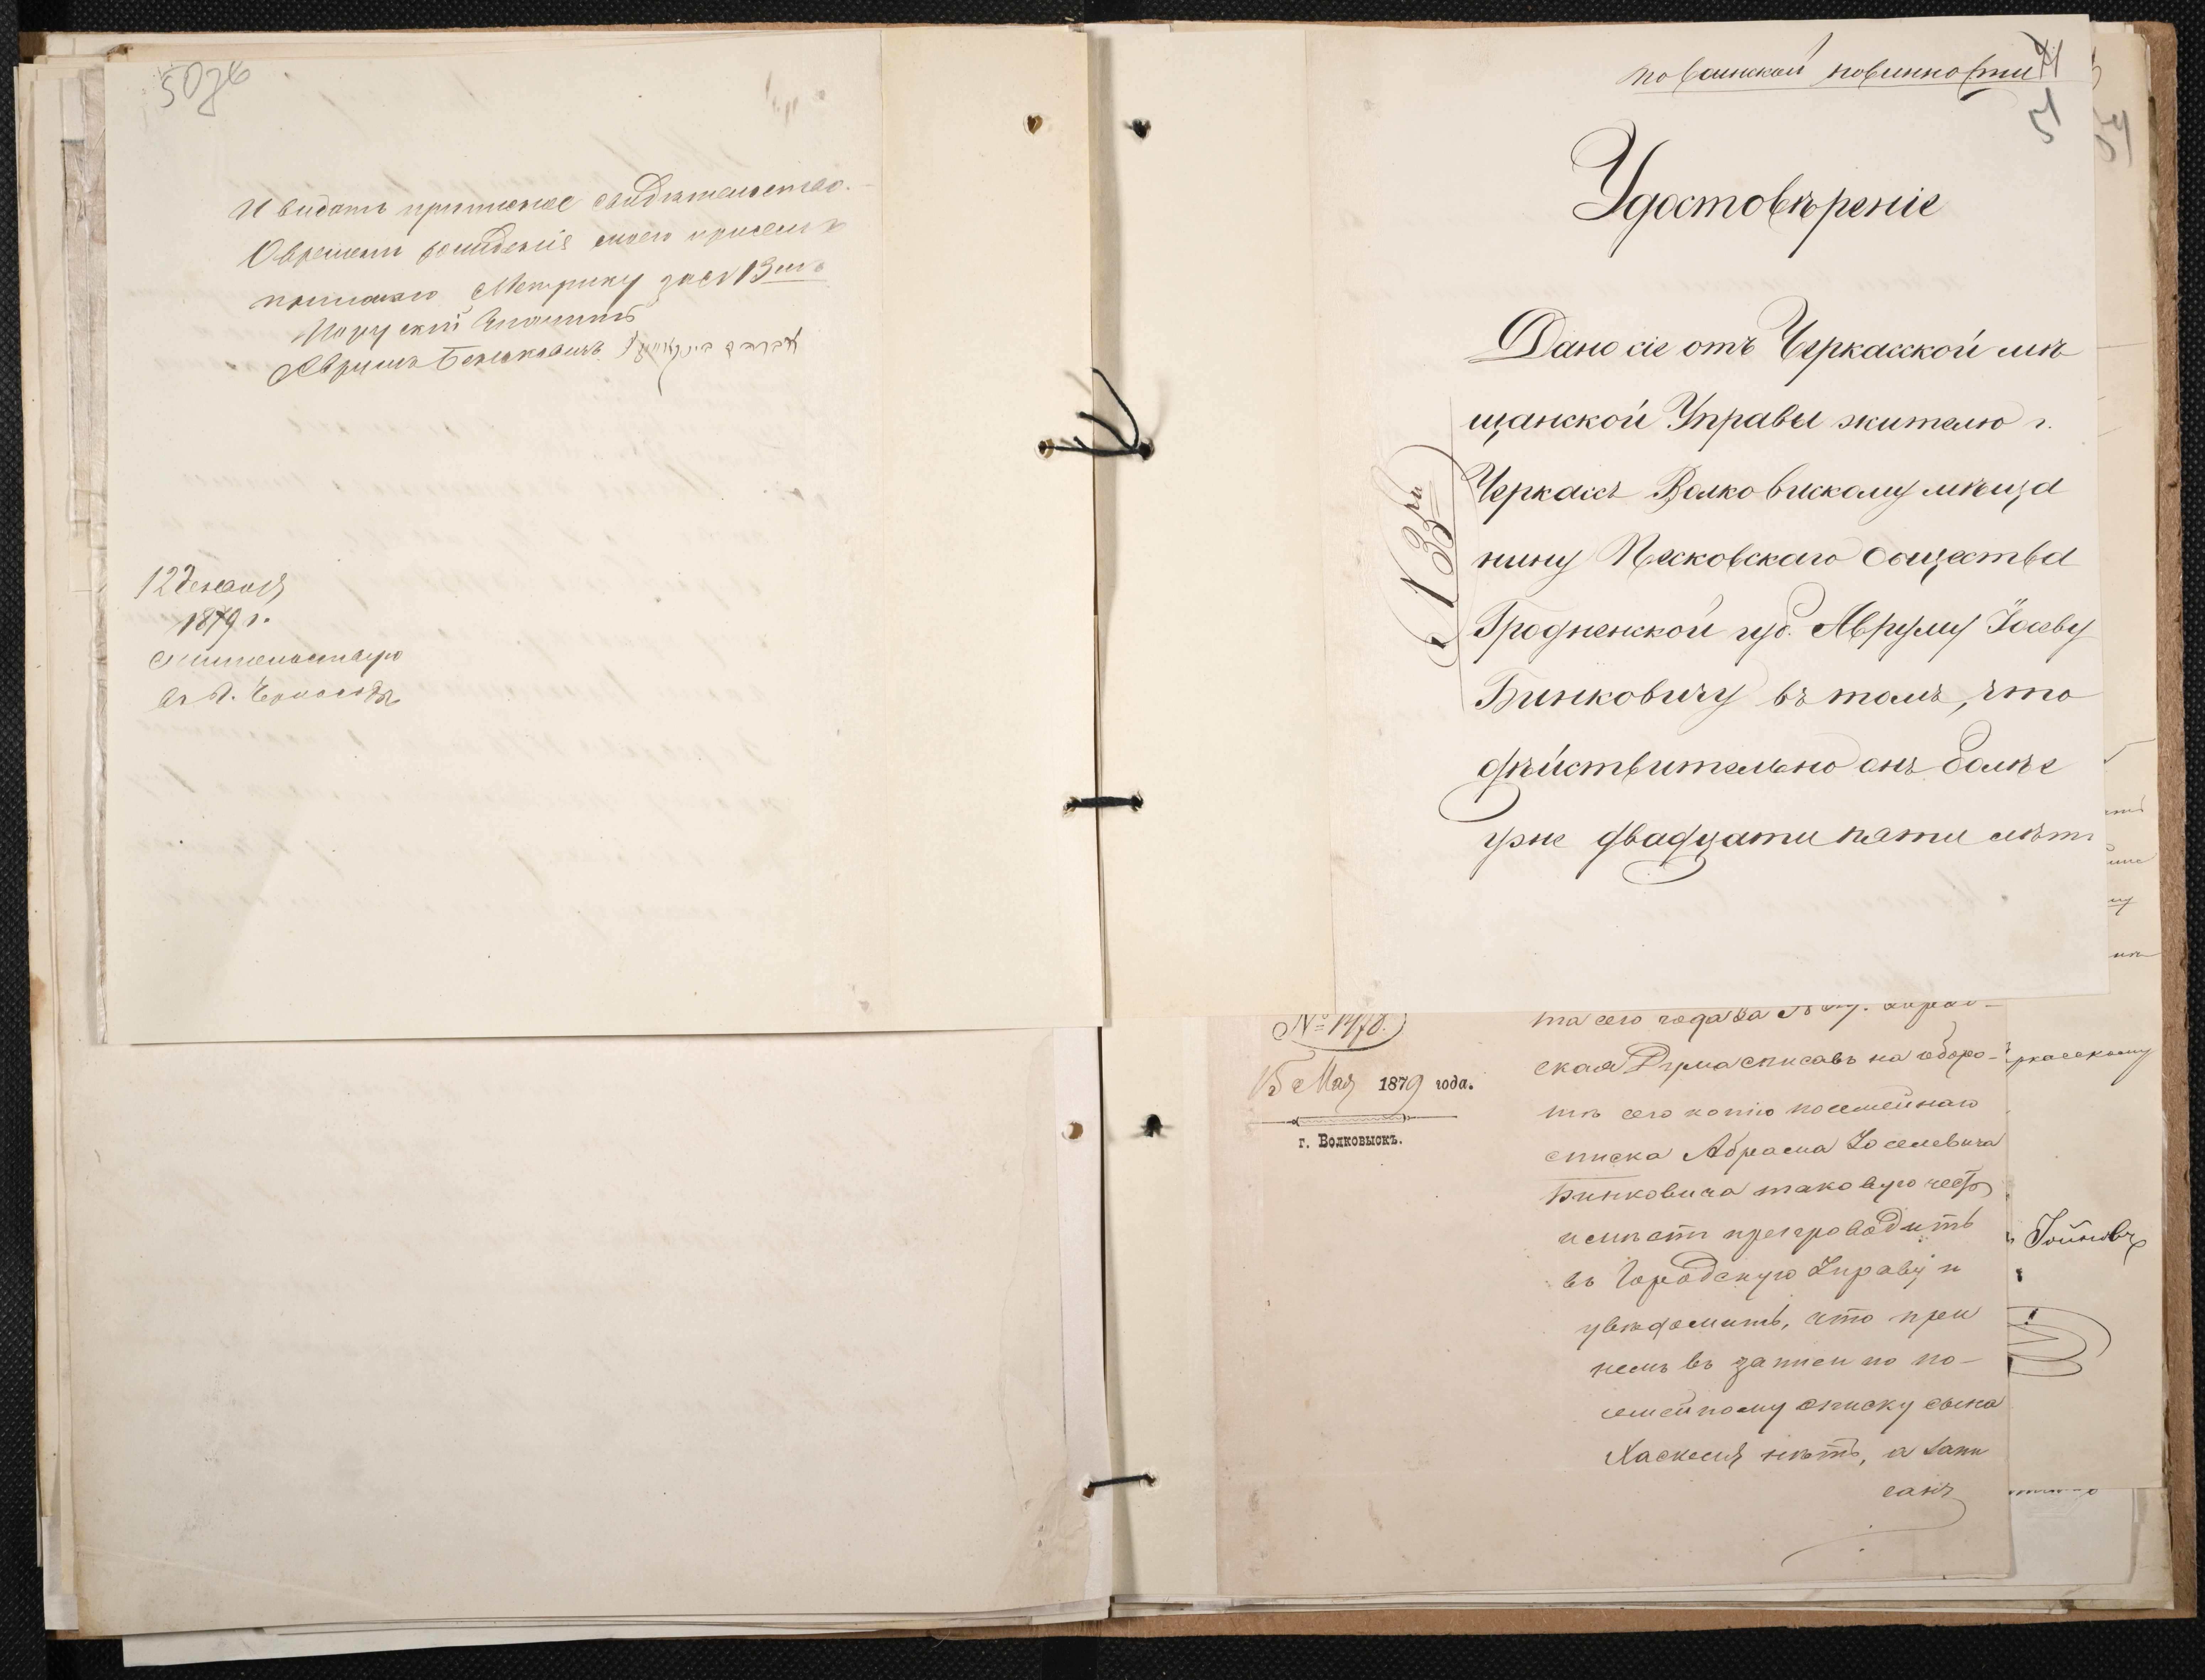 50об
И видать приписное свидѣтельство.
О времени рождения моего при семъ
прилагаю Метрику за № 13
Аврумъ Беньковичъ
12 декабря
1879 г.
Жительствую
въ г. Черкассѣ
по воинской повинности
51
Удостовѣреніе
Дано сіе отъ Черкасской мѣ
щанской Управы жителю г.
Черкассъ Волковискому мѣща
нину Песковскаго Общества
Гродненской губ. Аврулу Іосеву
Бинковичу въ томъ, что
дѣйствительно онъ болѣе
уже двадцати пяти лѣтъ
51
№ 1478.
15 Мая 1879 года.
г. Волковыскъ.
та сего года за №
ская Дума списавъ на оборо-
тѣ сего копію посемейнаго
списка Абрама Іоселевича
Бинковича таковую честь
имѣетъ препроводить
въ Городскую Управу и
увѣдомить, что при
немъ въ записи по по-
семейному списку сына
Хаскеля нѣтъ, а запи
санъ